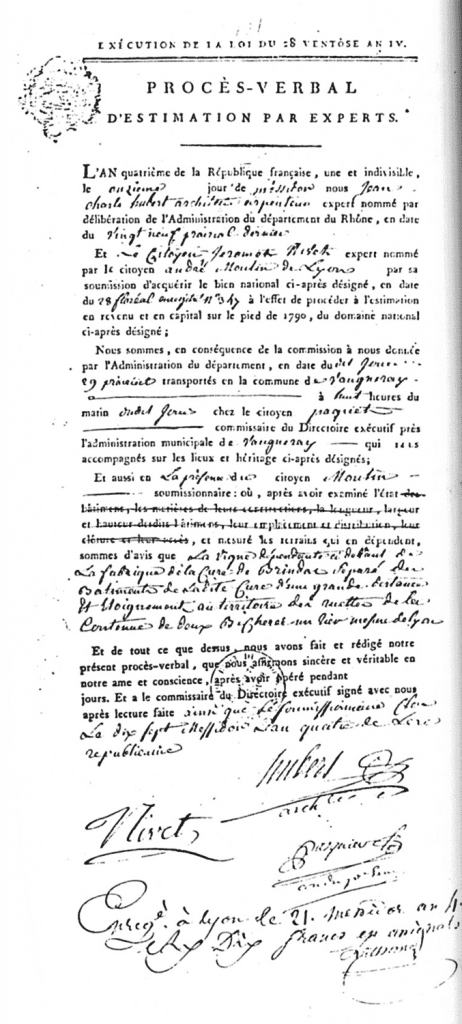 EXÉCUTION DE LA LOI DU 28 VENTÔSE AN IV.
PROCÈS-VERBAL
D'ESTIMATION PAR EXPERTS.
L'AN quatrième de la République française, une et indivisible,
le onzieme jour de messidor nous Jean
Charle hubert architecte arpenteur expert nommé par
délibération de l'Administration du département du Rhône, en date
du Vingt neuf prairial dernier
Et Le Citoyen Nivet expert nommé
par le citoyen andré Moulin de Lyon par sa
soumission d'acquérir le bien national ci-après désigné, en date
du 28 floréal à l'effet de procéder à l'estimation
en revenu et en capital sur le pied de 1790, du domaine national
ci-après désigné;
Nous sommes, en conséquence de la commission à nous donnée
par l'Administration du département, en date du dit Jour
29 prairial transportés en la commune de Vaugneray
à huit heures du
matin dudit Jour chez le citoyen paquet
commissaire du Directoire exécutif près
l'administration municipale de Vaugneray qui nous
accompagnés sur les lieux et héritage ci-après désignés;
Et aussi en La présence du citoyen Moulin
soumissionnaire: où, après avoir examiné l'état des
bâtimens, les matières de leurs constructions, la longueur, largeur
et hauteur desdits bâtimens, leur emplacement et distribution, leur
clôture et leur accès, et mesuré les terrains qui en dépendent,
sommes d'avis que La Vigne dépendante de
La fabrique de la Cure de Brindas séparé des
Batiments de Ladite Cure d'une grande distance
et Eloignement au territoire des de la
Contenue de deux Bicherées un tier mesure de Lyon
Et de tout ce que dessus, nous avons fait et rédigé notre
présent procès-verbal, que nous affirmons sincère et véritable en
notre ame et conscience, après avoir opéré pendant
jours. Et a le commissaire du Directoire exécutif signé avec nous
après lecture faite ainsi que Le soumissionnaire
Le dix sept Messidor L'an quatre de L'ere
republicaine
hubert
archte
Nivet
Enregé à Lyon le 21 messidor an 4
Dix francs en assignats